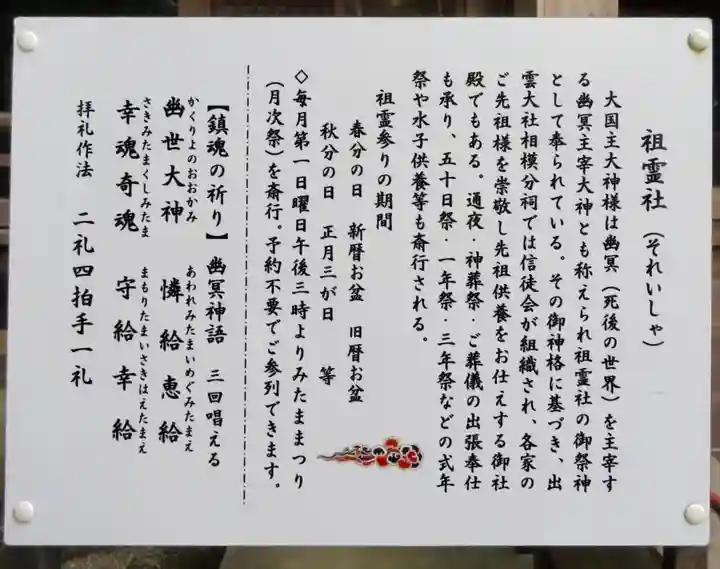 祖霊社（それいしゃ）
大国主大神様は幽冥（死後の世界）を主宰す
る幽冥主宰大神とも称えられ祖霊社の御祭神
として奉られている。その御神格に基づき、出
雲大社相模分祠では信徒会が組織され、各家の
ご先祖様を崇敬し先祖供養をお仕えする御社
殿でもある。通夜・神葬祭・ご葬儀の出張奉仕
も承り、五十日祭・一年祭・三年祭などの式年
祭や水子供養等も斎行される。
祖霊参りの期間
春分の日　新暦お盆　旧暦お盆
秋分の日　正月三が日　等
◇毎月第一日曜日午後三時よりみたままつり
（月次祭）を斎行。予約不要でご参列できます。
【鎮魂の祈り】幽冥神語　三回唱える
かくりよのおおかみ　あわれみたまいめぐみたまえ
幽世大神　憐給恵給
さきみたまくしみたま　まもりたまいさきはえたまえ
幸魂奇魂　守給幸給
拝礼作法　二礼四拍手一礼